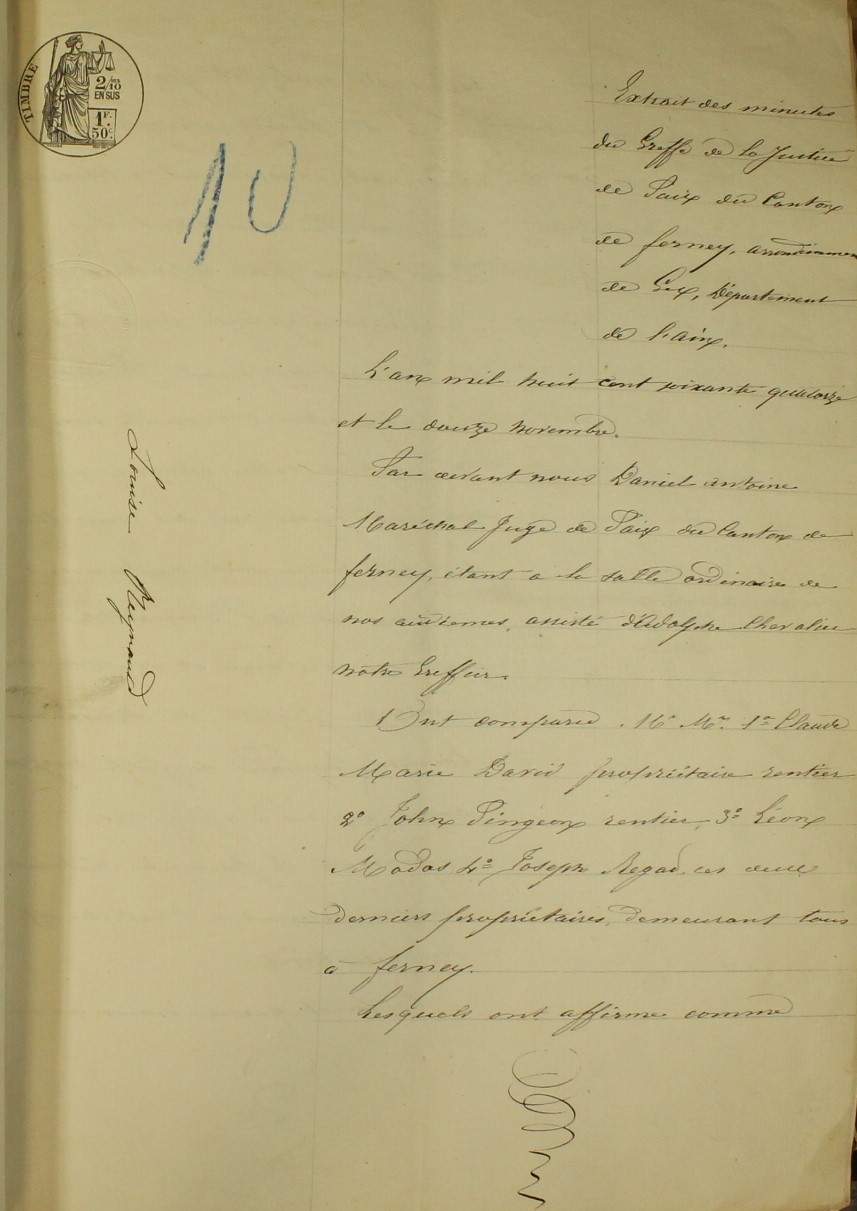 TIMBRE
2/10
EN SUS
1F.
50c
10
Extrait des minutes
du Greffe de la Justice
de Paix du Canton
de ferney, arrondissement
de Gex, Département
de l'ain.
L'an mil huit cent soixante quatorze
et le douze novembre.
Par devant nous Daniel antoine
Maréchal Juge de Paix du Canton de
ferney, étant a la salle ordinaire de
nos audiences, assisté d'Adolphe Chevalier
notre Greffier.
Ont comparu. Mrs 1o Claude
Marie David propriétaire rentier
2o John Pingeon rentier, 3o Léon
Modas 4o Joseph Regad, ces deux
derniers propriétaires, demeurant tous
à ferney.
Lesquels ont affirme comme
Louise Reynaud